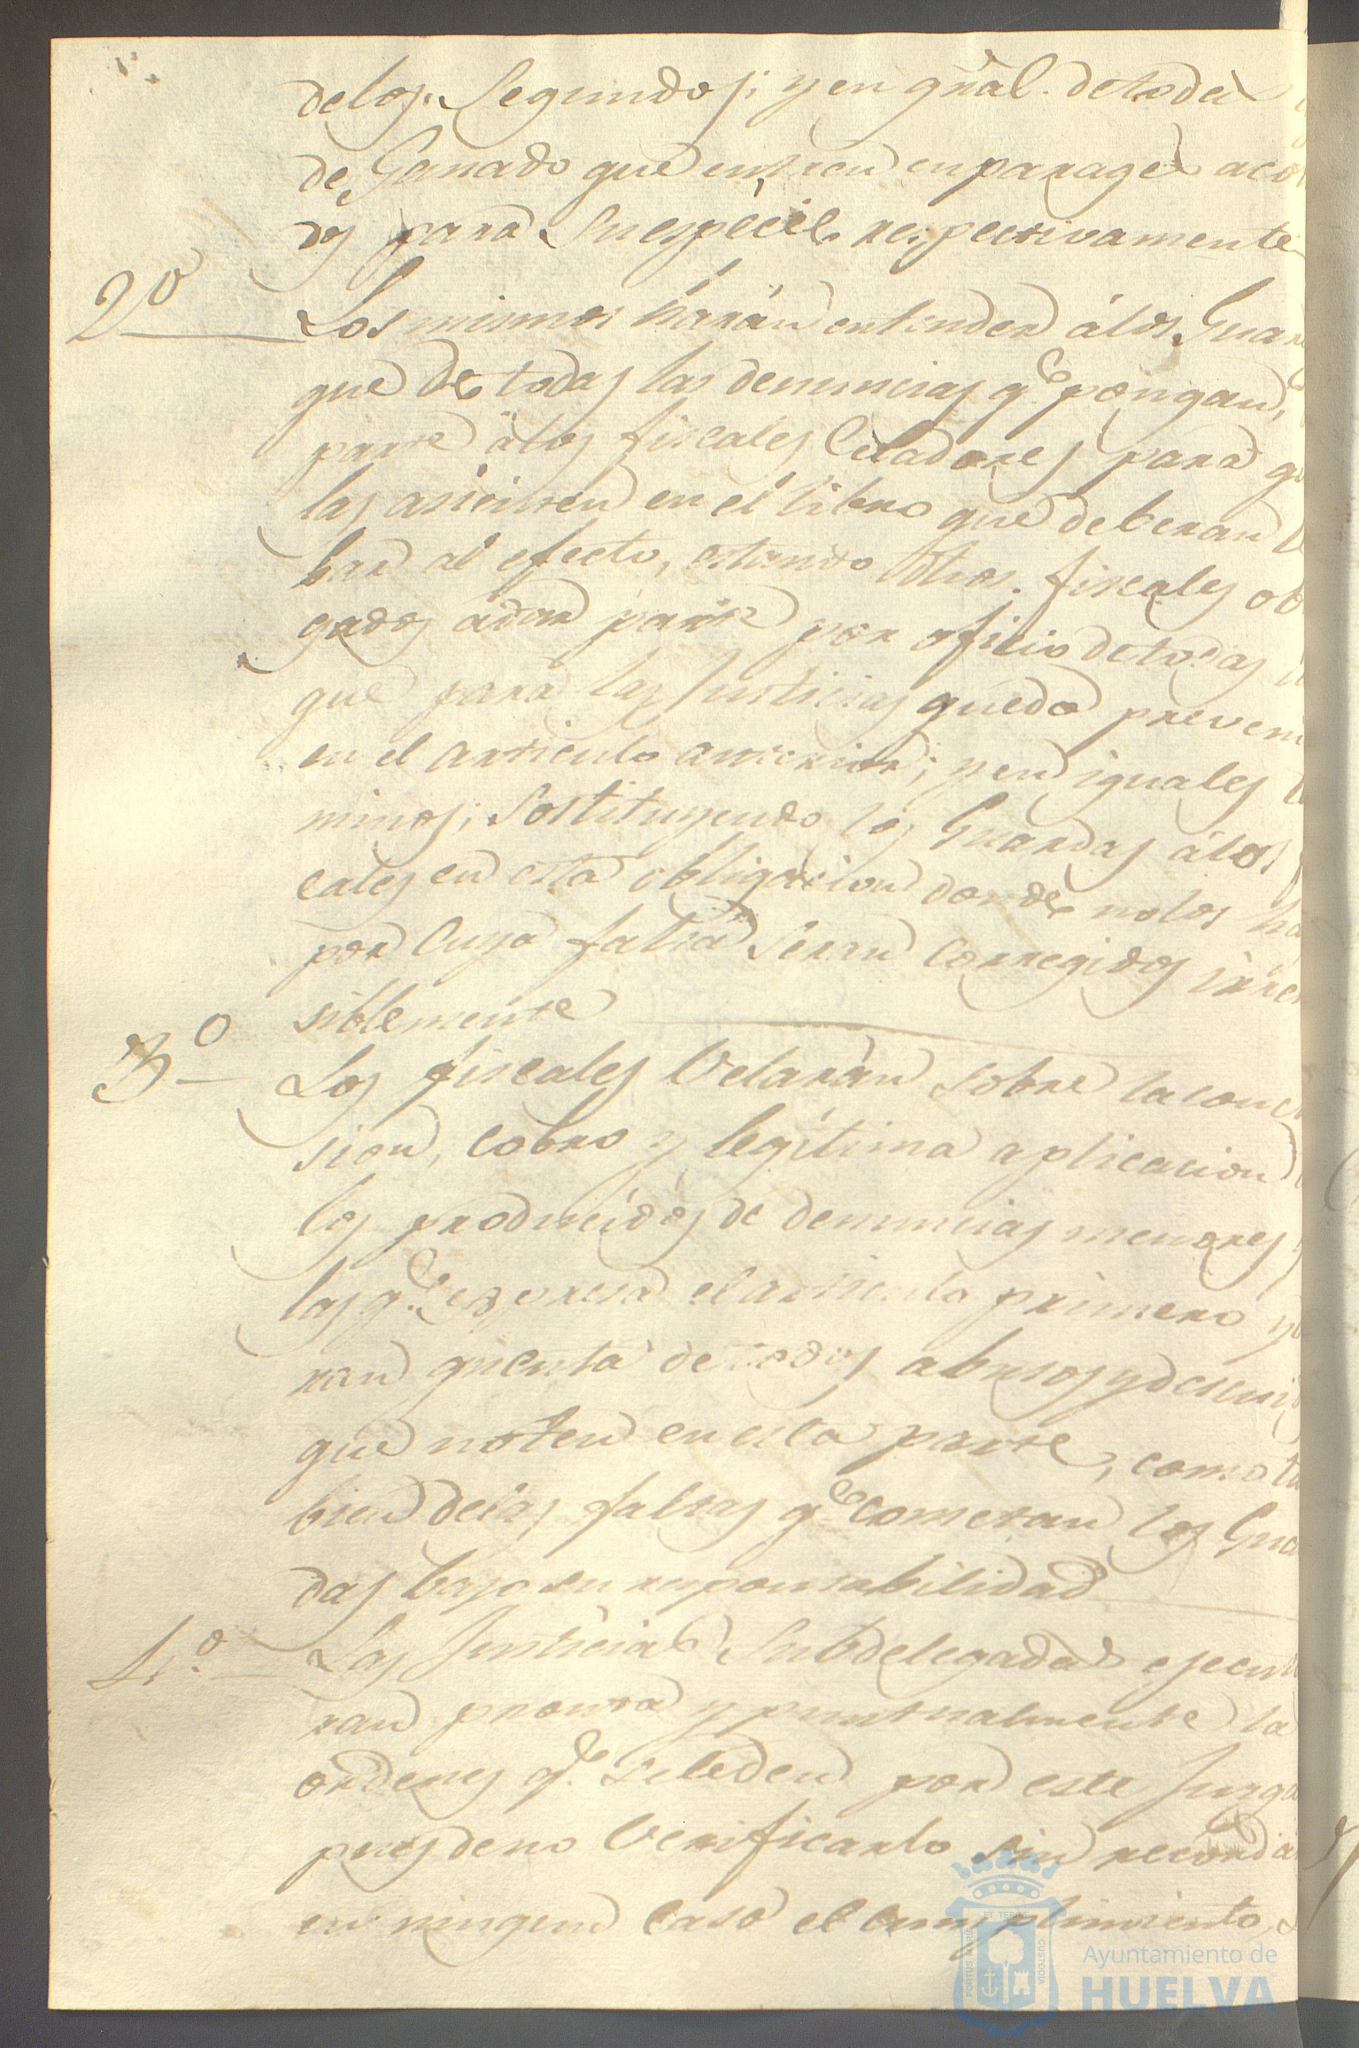 delos Segundos; y en gral. de toda
de Ganado que entren en parages aco
dos para su especie respectivamente
2º Los mismos harán entender á los Guar
que de todas las denuncias qe. pongan,
parte á los fiscales Celadores para q
las asienten en el libro que deberan
bar al efecto, estando dhos. fiscales ob
gados a dar parte por oficio de todas
que para las Justicias quedó preveni
en el articulo anterior; y en iguales
minos; sostituyendo los Guardas á los
cales en esta obligacion donde no los ha
por cuya falta seran corregidos irre
siblemente
3º Los fiscales Velarán sobre la conc
sion, cobro y legítima aplicacion
los producidos de denuncias menores
las qe. expresa el articulo primero y
ran quenta de todos abusos y descui
que noten en esta parte, como ta
bien de las faltas qe. cometan los Gua
das bajo su responsabilidad
4º. Las Justicias Subdelegadas ejecut
ran pronta y puntualmente la
ordenes qe. se le den por este Juzga
pues de no Verificarlo sin recorda
en ningun caso el cumplimiento
Ayuntamiento de
HUELVA